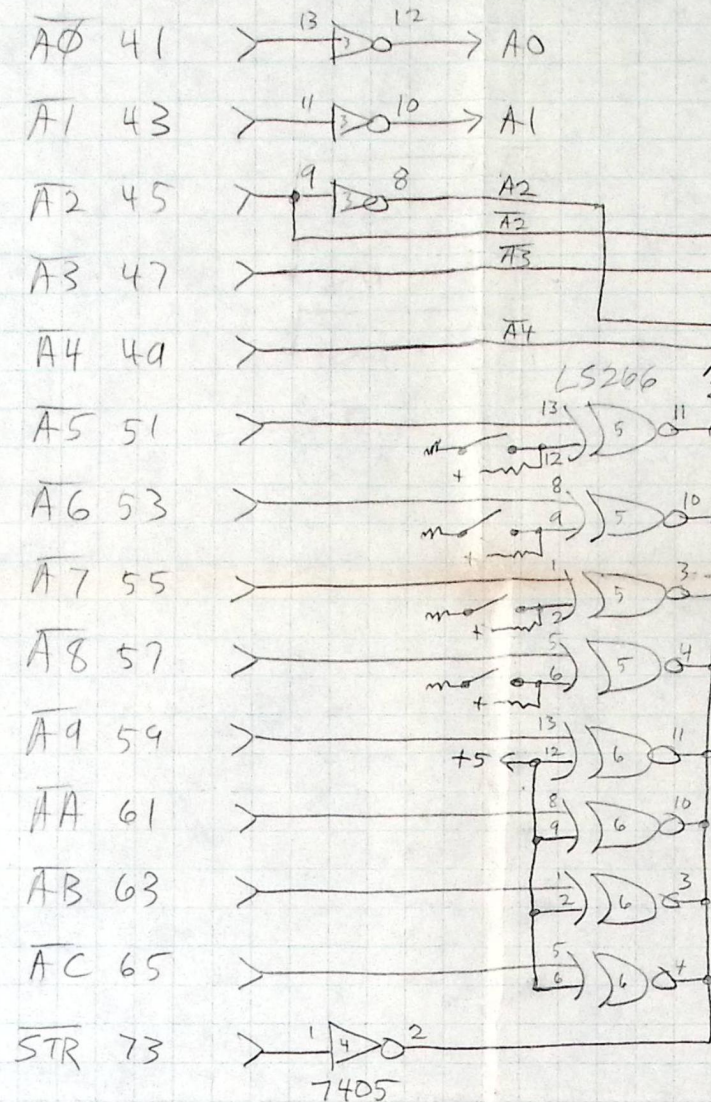 A̅0̅ 41 13 3 12 A0
A̅1̅ 43 11 3 10 A1
A̅2̅ 45 9 3 8 A2
A̅2̅
A̅3̅ 47 A̅3̅
A̅4̅ 49 A̅4̅
LS266
A̅5̅ 51 13 5 11
+ 12
A̅6̅ 53 8 5 10
+ 9
A̅7̅ 55 1 5 3
+ 2
A̅8̅ 57 5 5 4
+ 6
A̅9̅ 59 13 6 11
+5 12
A̅A̅ 61 8 6 10
9
A̅B̅ 63 1 6 3
2
A̅C̅ 65 5 6 4
6
S̅T̅R̅ 73 1 4 2
7405